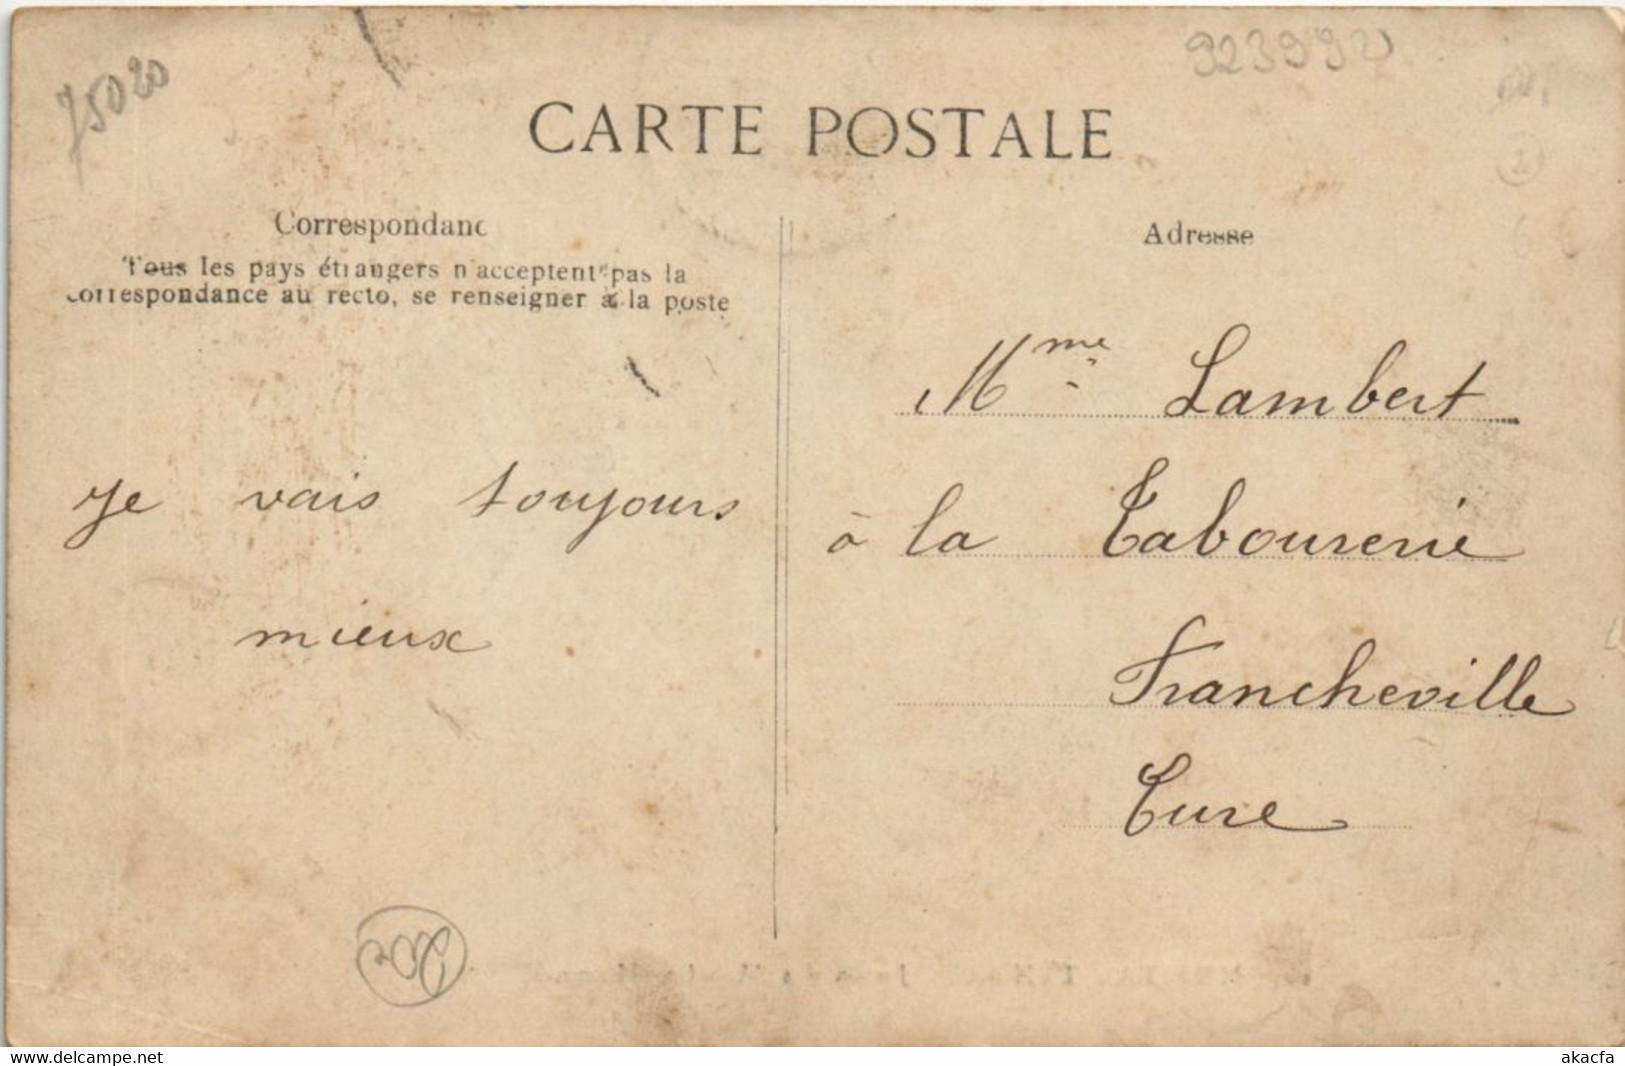 75020
923992
CARTE POSTALE
Correspondanc
Tous les pays étrangers n'acceptent pas la
correspondance au recto, se renseigner à la poste
Adresse
Je vais toujours
mieux
Mme Lambert
à la Tabourerie
Francheville
Eure
delcampe.net
akacfa